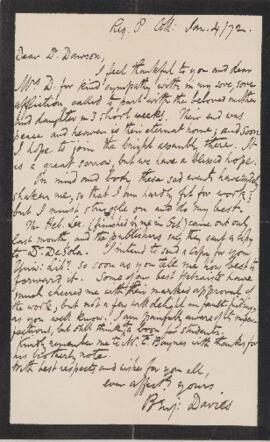 Reg. P. Coll: Jan. 4/72.
Dear Dr. Dawson,
I feel thankful to you and dear
Mrs D. for kind sympathy with in my sore, sore
affliction, called to part with the beloved mother
and daughter in 3 short weeks. Their end was
peace and heaven is their eternal home; and soon
I hope to join the bright assembly there. It
is a great sorrow, but we have a blessed hope.
In mind and body, these sad events have truly
shaken me, so that I am hardly fit for work;
but I must struggle on and do my best.
The Heb. Lex. (finished by me in Oct.) came out only
last month, and the publishers say they sent a copy
to Dr. DeSola. I intend to send a copy for your
Univ. Liby. so soon as you tell me how best to
forward it. Some of our best Hebraists have
much cheered me with their marked approval of
the work; but not a few will delight in fault finding,
as you well know. I am painfully aware of its imper-
fections, but still think it a boon for students.
Kindly remember me to Mr. E. Baynes with thanks for
his brotherly note.
With best respects and wishes for you all,
ever affectly yours
Benj: Davies